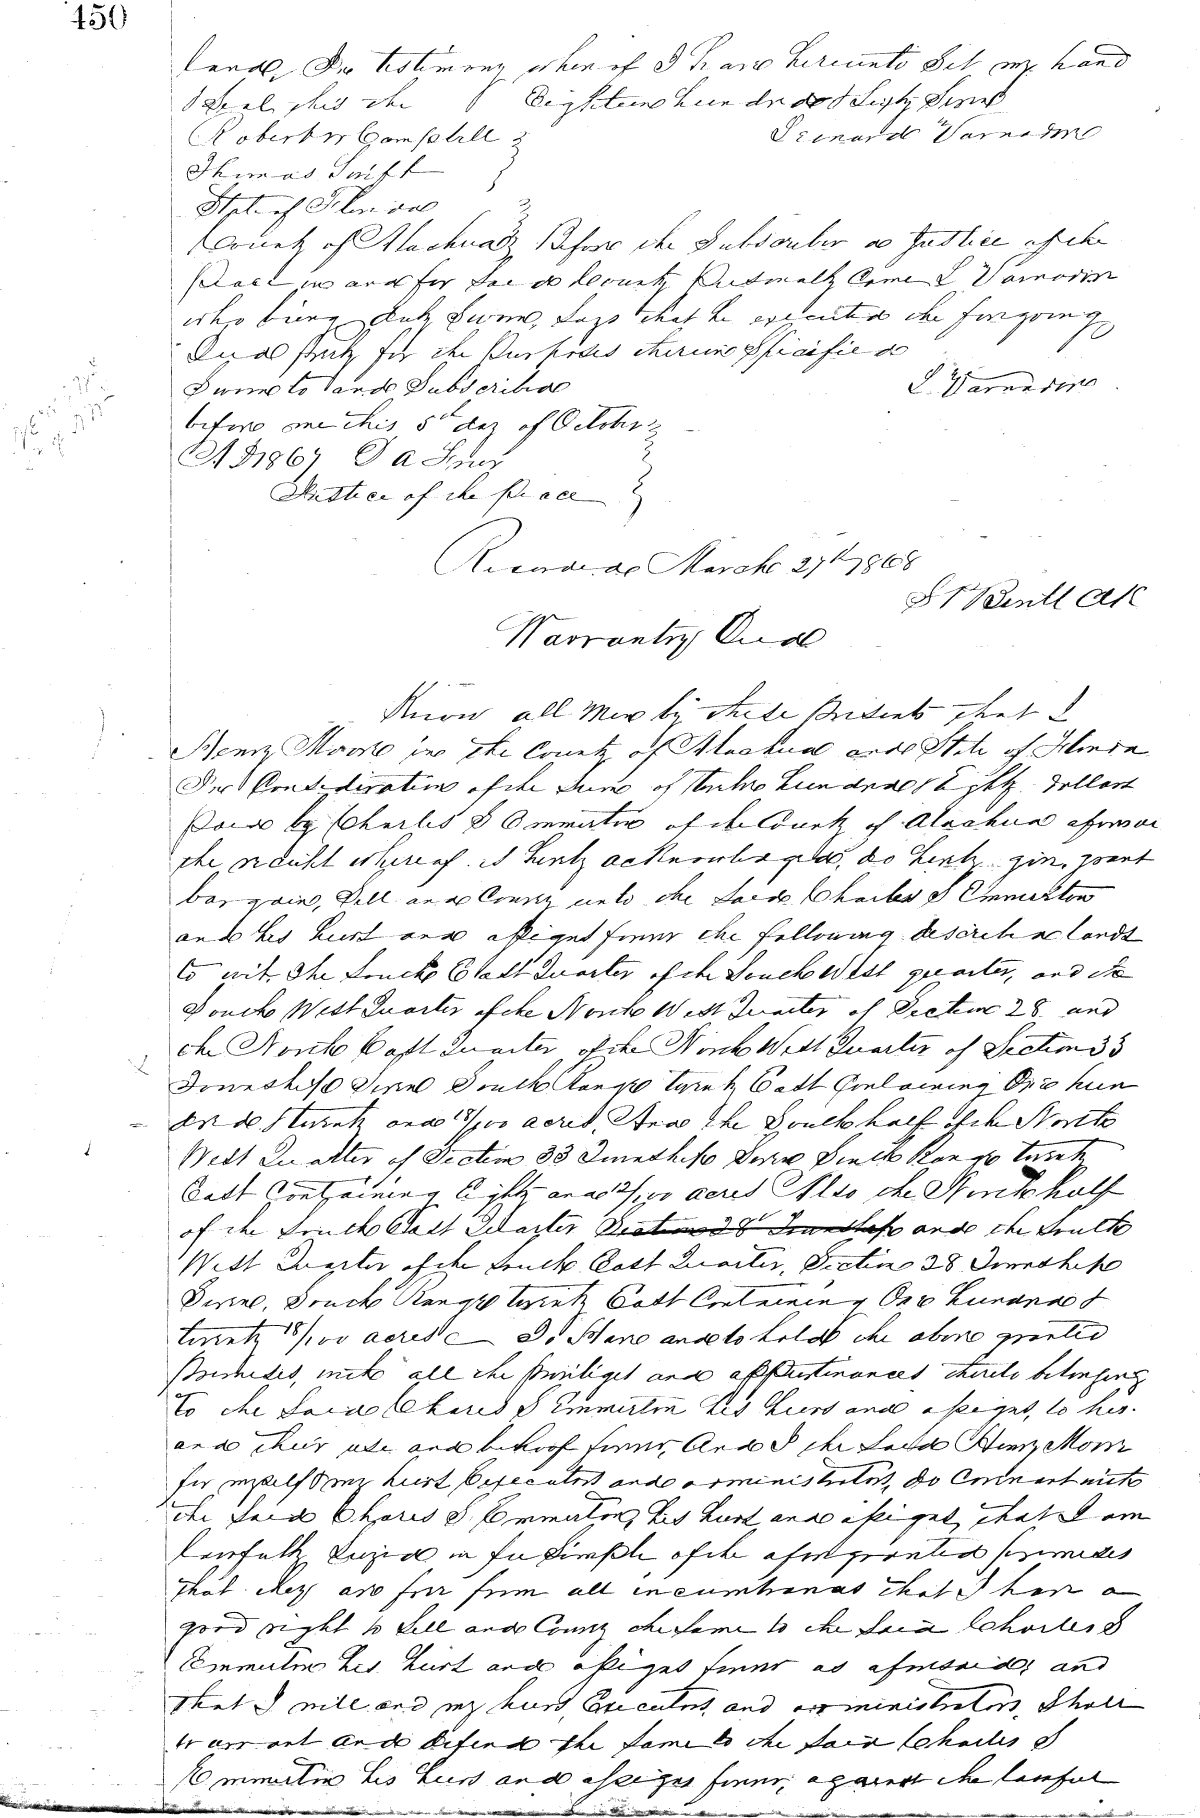 450
land, In testimony whereof I have hereunto Set my hand
& Seal this the Eighteen hundred & Sixty Seven
Robert W Campbell
Varnadore
Thomas Swift
State of Florida
County of Alachua Before the Subscriber a Justice of the
peace in and for Said County Personally Came L Varnadore
who being duly Sworn, Says that he executed the foregoing
Deed freely for the Purposes therein Specified
Sworn to and Subscribed
L. Varnadore
before me this 5th day of October
A D 1867
Justice of the peace
Recorded March 27th 1868
Clk
Warranty Deed
Know all Men by these Presents that I
Henry Moore in the County of Alachua and State of Florida
In Consideration of the Sum of Twelve hundred & Eighty Dollars
Paid by Charles S Emmerton of the County of Alachua aforesai
the receipt whereof is hereby acknowledged, do hereby give, grant
bargain, Sell and Convey unto the Said Charles S Emmerton
and his heirs and assigns forever the following described lands
to wit, The South East Quarter of the South West quarter, and the
South West Quarter of the North West Quarter of Section 28 and
the North East Quarter of the North West Quarter of Section 33
Township Seven South Range twenty East Containing One hun
dred & twenty and 18/100 acres, And the South half of the North
West Quarter of Section 33 Township Seven South Range twenty
East Containing Eighty and 12/100 acres Also the North half
of the South East Quarter Section 28 Township and the South
West Quarter of the South East Quarter, Section 28 Township
Seven, South Range twenty East Containing One hundred &
twenty 18/100 acres To Have and to hold the above granted
Premises, with all the Privileges and appurtinances thereto belonging
to the Said Chares S Emmerton his heirs and assigns, to his
and their use and behoof forever, And I the Said Henry Moore
for myself & my heirs Executors and administrators, do Covenant with
the Said Chares S. Emmerton, his heirs and assigns, that I am
lawfully Seized in fee Simple of the aforegranted premises
that they are free from all incumbrances that I have a
good right to Sell and Convey the Same to the Said Charles S
Emmerton his heirs and assigns forever as aforesaid; and
that I will and my heirs, Executors, and administrators, Shall
warrant and defend the Same to the Said Charles S
Emmerton his heirs and assigns forever, against the lawful